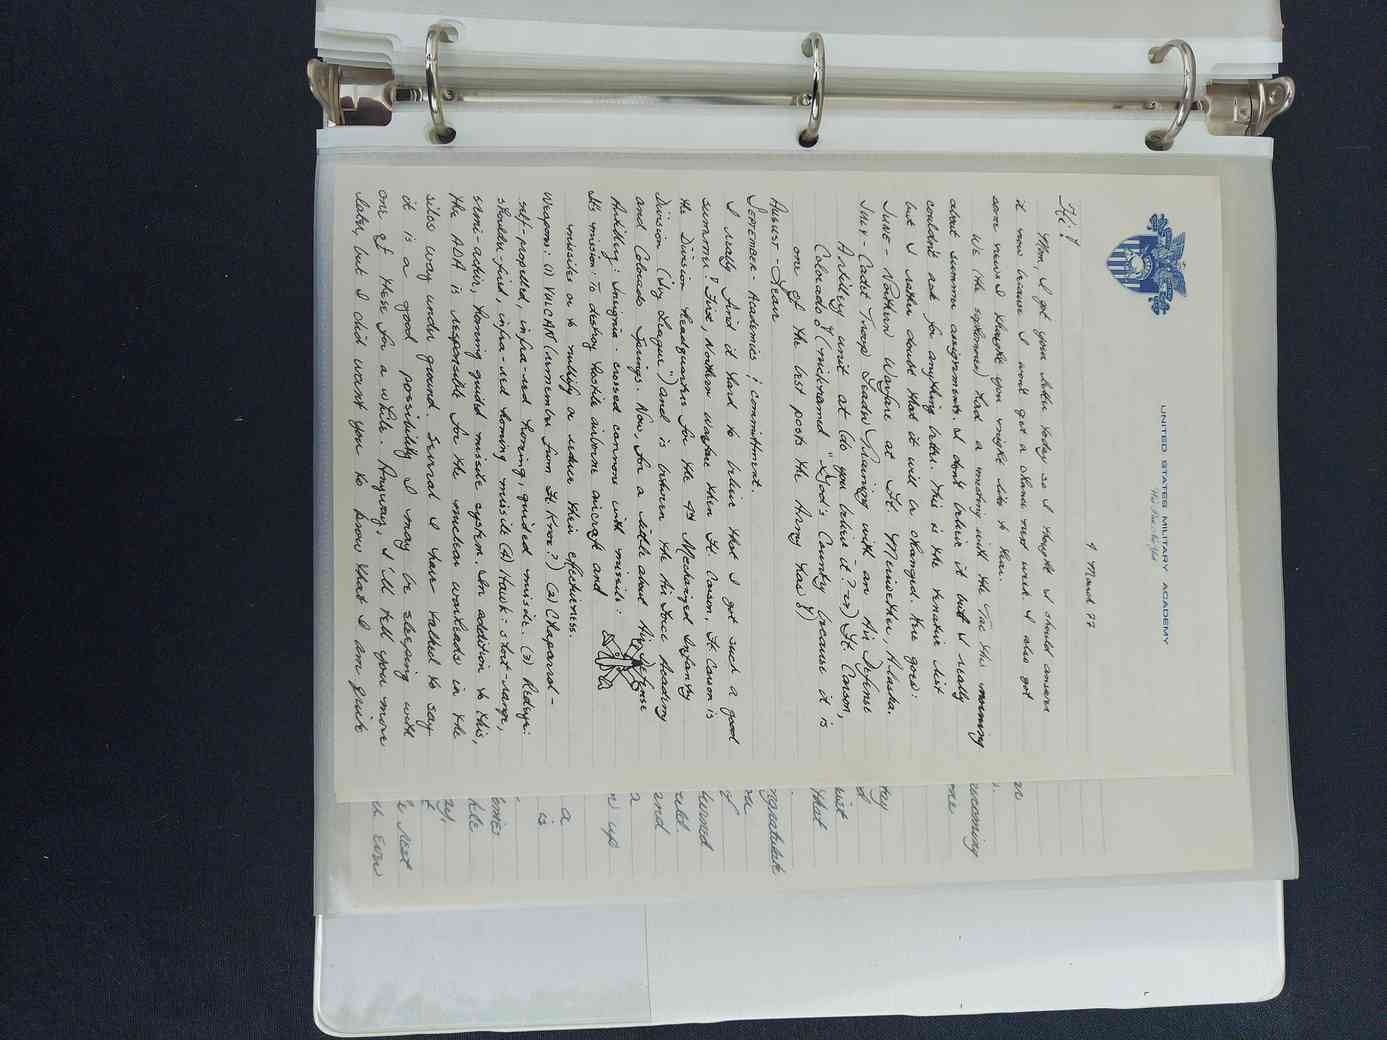 UNITED STATES MILITARY ACADEMY
West Point, New York
9 March 77
Hi!
Mom, I got your letter today so I thought I should answer
it now because I won't get a chance next week. I also got
some news I thought you might like to hear.
We (the sophomores) had a meeting with the Tac this morning
about summer assignments. I don't believe it but I really
couldn't ask for anything better. This is the tenative list
but I rather doubt that it will be changed. Here goes:
JUNE - Northern Warfare at Ft. Wainwright, Alaska.
JULY - Cadet Troop Leader Training with an Air Defense
Artillery unit at (do you believe it?→) Ft. Carson,
Colorado! (nicknamed "God's Country because it is
one of the best posts the Army has!)
August - Leave
September - Academics; committment.
I really find it hard to believe that I got such a good
summer! First, Northern Warfare then Ft. Carson. Ft. Carson is
the Division Headquarters for the 4th Mechanized Infantry
Division ("Ivy League") and is between the Air Force Academy
and Colorado Springs. Now, for a little about Air Defense
Artillery: Insignia - crossed cannons with missile:
It's mission: To destroy hostile airborne aircraft and
missiles or to nullify or reduce their effectiveness.
Weapons: (1) VULCAN (remember from Ft. Knox?) (2) Chaparral -
self-propelled, infra-red homing, guided missile. (3) Redeye:
shoulder-fired, infra-red homing missile (4) Hawk: short-range,
semi-active, homing guided missile system. In addition to this,
the ADA is responsible for the nuclear warheads in the
silos way under ground. Several I have talked to say
it is a good possibility I may be sleeping with
one of these for a while. Anyway, I'll tell you more
later, but I did want you to know that I am quite